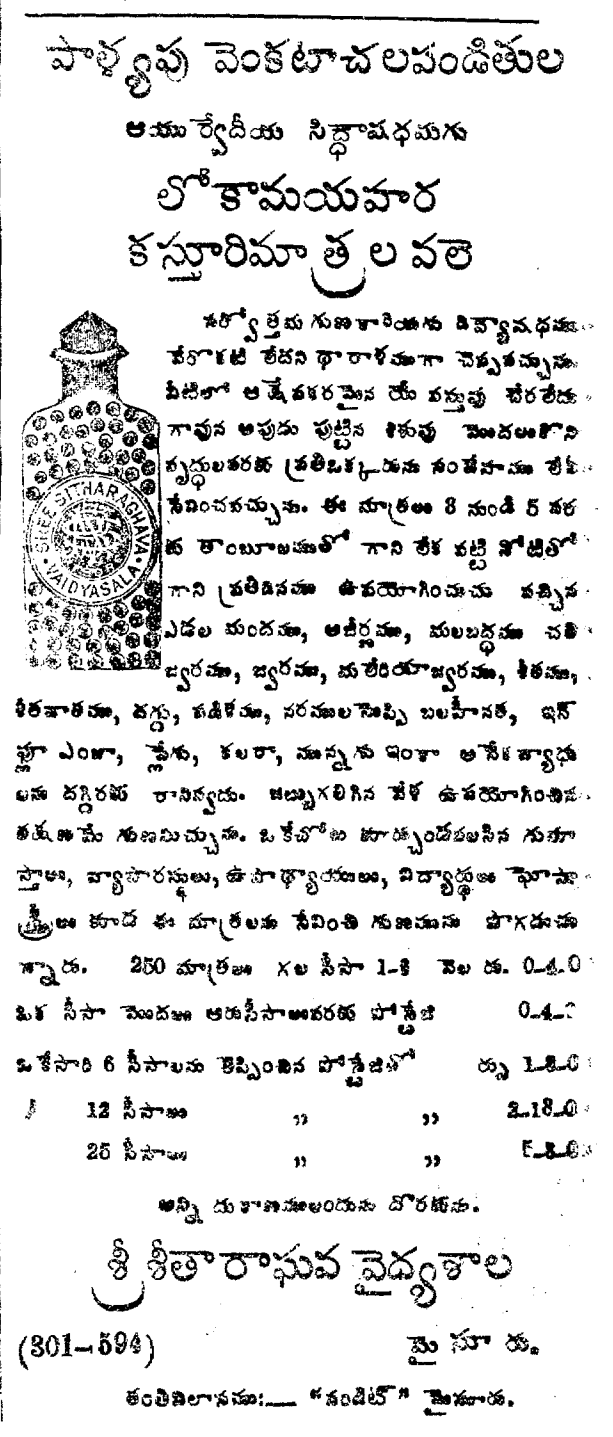 పాళ్యపు వెంకటాచలపండితుల
ఆయుర్వేదీయ సిద్ధౌషధమగు
లోకామయహర
కస్తూరిమాత్రలవలె
సర్వోత్తమగుణకారియగు దివ్యౌషధము
వేరొకటి లేదని ధారాళముగా చెప్పవచ్చును
వీటిలో ఆక్షేపకరమైన యే వస్తువు చేరలేదు
SREE SITHARAGHAVA VAIDYASALA
గావున అపుడు పుట్టిన శిశువు మొదలుకొని
వృద్ధులవరకు ప్రతిఒక్కరును సందేహము లేక
సేవించవచ్చును. ఈ మాత్రలు 3 నుండి 5 వర
కు తాంబూలముతో గాని లేక వట్టి నోటితో
గాని ప్రతిదినము ఉపయోగించుచు వచ్చిన
ఎడల మందము, అజీర్ణము, మలబద్ధము చలి
జ్వరము, జ్వరము, మలేరియాజ్వరము, శీతము,
శీతవాతము, దగ్గు, పడిశము, నరములనొప్పి బలహీనత, ఇన్
ఫ్లూ ఎంజా, ప్లేగు, కలరా, మున్నగు ఇంకా అనేకవ్యాధు
లను దగ్గిరకు రానివ్వదు. జబ్బుగలిగిన వేళ ఉపయోగించిన
తక్షణమే గుణమిచ్చును. ఒకేచోటు కూర్చుండవలసిన గుమా
స్తాలు, వ్యాపారస్థులు, ఉపాధ్యాయులు, విద్యార్థులు ఘోషా
స్త్రీలు కూడ ఈ మాత్రలను సేవించి గుణమును పొగడుచు
న్నారు. 250 మాత్రలు గల సీసా 1-కి వెల రు. 0-4-0
ఒక సీసా మొదలు ఆరుసీసాలవరకు పోస్టేజి 0-4-
ఒకేసారి 6 సీసాలను తెప్పించిన పోస్టేజితో ర్పు 1-8-0
12 సీసాలు ,, ,, 2-13-0
25 సీసాలు ,, ,, 5-8-0
అన్ని దుకాణములందును దొరకును.
శ్రీ సీతారాఘవ వైద్యశాల
(301-594) మైసూరు.
తంతివిలాసము:— "పండిట్" మైసూరు.